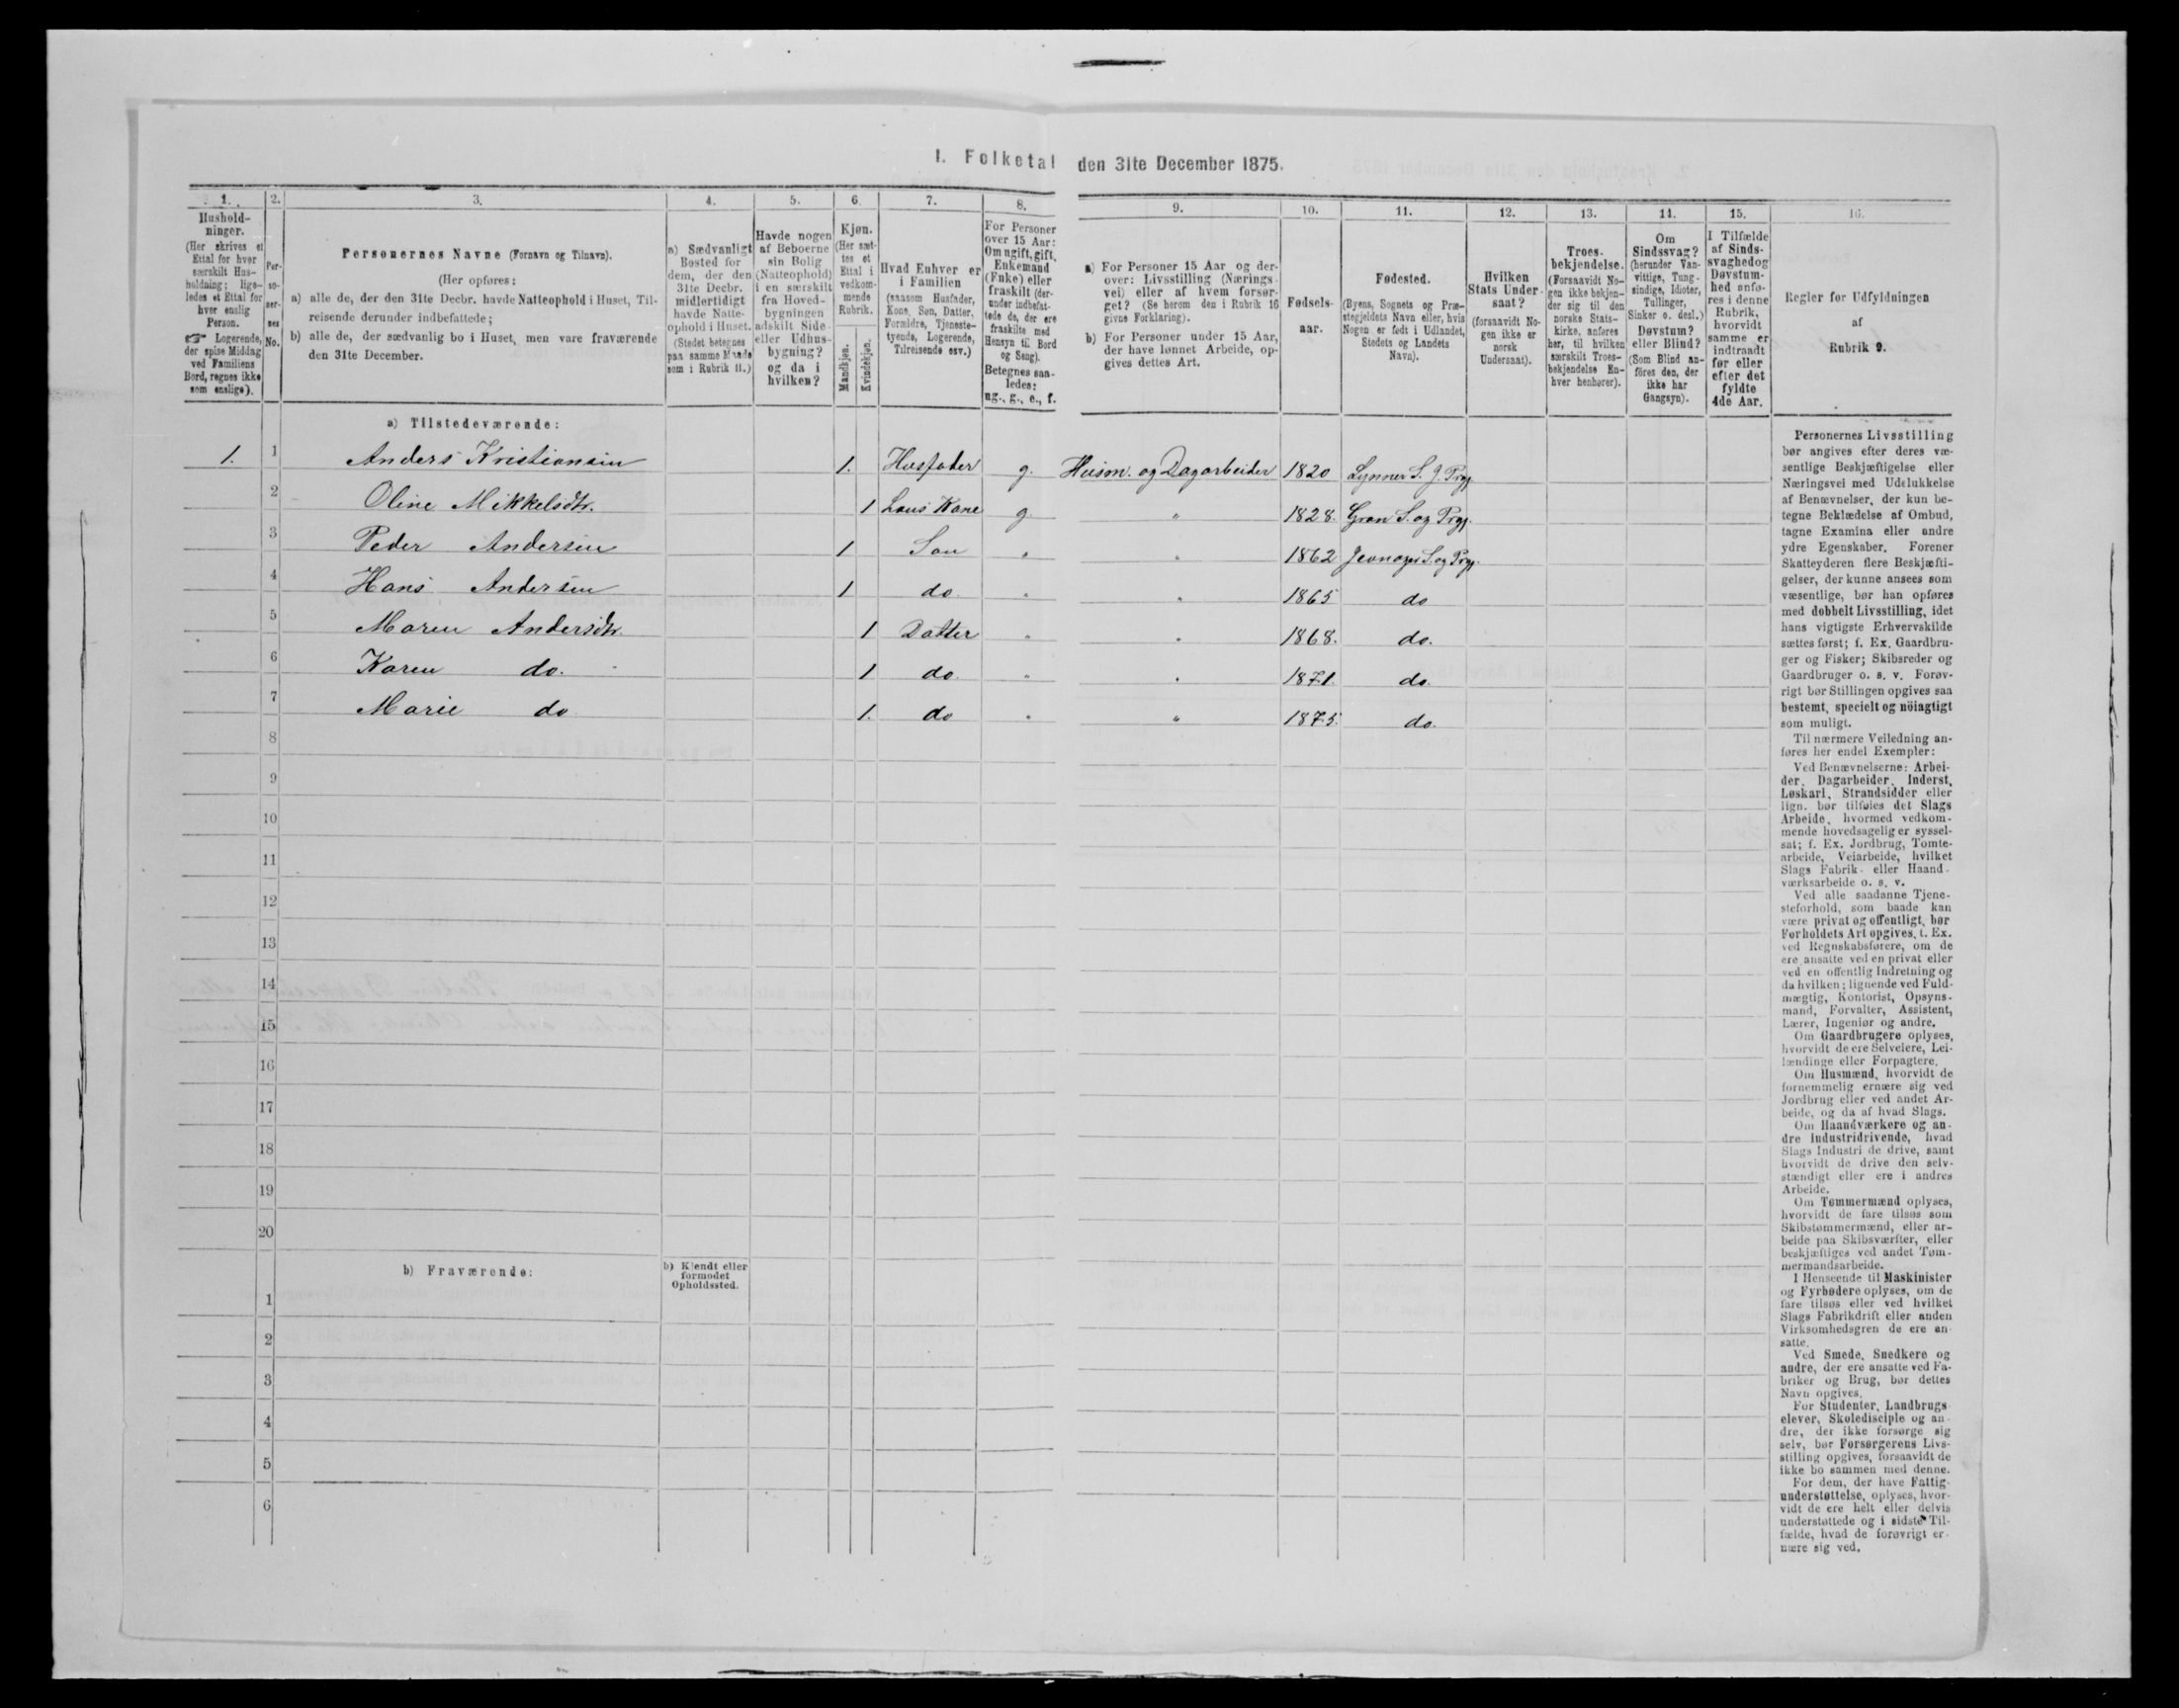 1. Folketal den 31te December 1875.
1. 2. 3. 4. 5. 6. 7. 8. 9. 10. 11. 12. 13. 14. 15. 16.
Hushold-
ninger.
(Her skrives et
Ettal for hver
særskilt Hus-
holdning; lige-
ledes et Ettal for
hver enslig
Person.
☞ Logerende,
der spise Middag
ved Familiens
Bord, regnes ikke
som enslige).
Per-
so-
ner-
nes
No.
Personernes Navne (Fornavn og Tilnavn).
(Her opføres:
a) alle de, der den 31te Decbr. havde Natteophold i Huset, Til-
reisende derunder indbefattede;
b) alle de, der sædvanlig bo i Huset, men vare fraværende
den 31te December.
a) Sædvanligt
Bosted for
dem, der den
31te Decbr.
midlertidigt
havde Natte-
ophold i Huset.
(Stedet betegnes
paa samme Maade
som i Rubrik 11.)
Havde nogen
af Beboerne
sin Bolig
(Natteophold)
i en særskilt
fra Hoved-
bygningen
adskilt Side-
eller Udhus-
bygning?
og da i
hvilken?
Kjøn.
(Her sæt-
tes et
Ettal i
vedkom-
mende
Rubrik.
Mandkjøn.
Kvindekjøn.
Hvad Enhver er
i Familien
(saasom Husfader,
Kone, Søn, Datter,
Forældre, Tjeneste-
tyende, Logerende,
Tilreisende osv.)
For Personer
over 15 Aar:
Om ugift, gift,
Enkemand
(Enke) eller
fraskilt (der-
under indbefat-
tede de, der ere
fraskilte med
Hensyn til Bord
og Seng).
Betegnes saa-
ledes:
ug., g., e., f.
a) For Personer 15 Aar og der-
over: Livsstilling (Nærings-
vei) eller af hvem forsør-
get? (Se herom den i Rubrik 16
givne Forklaring).
b) For Personer under 15 Aar,
der have lønnet Arbeide, op-
gives dettes Art.
Fødsels-
aar.
Fødested.
(Byens, Sognets og Præ-
stegjeldets Navn eller, hvis
Nogen er født i Udlandet,
Stedets og Landets
Navn).
Hvilken
Stats Under-
saat?
(forsaavidt No-
gen ikke er
norsk
Undersaat).
Troes-
bekjendelse.
(Forsaavidt No-
gen ikke bekjen-
der sig til den
norske Stats-
kirke, anføres
her, til hvilken
særskilt Troes-
bekjendelse En-
hver henhører).
Om
Sindssvag?
(herunder Van-
vittige, Tung-
sindige, Idioter,
Tullinger,
Sinker o. desl.)
Døvstum?
eller Blind?
(Som Blind an-
føres den, der
ikke har
Gangsyn).
I Tilfælde
af Sinds-
svaghed og
Døvstum-
hed anfø-
res i denne
Rubrik,
hvorvidt
samme er
indtraadt
før eller
efter det
fyldte
4de Aar.
Regler for Udfyldningen
af
Rubrik 9.
a) Tilstedeværende:
1. 1 Anders Kristiansen 1. Husfader g. Husm. og Dagarbeider 1820 Lynner S. J. Prgj.
2 Oline Mikkelsdtr. 1 Hans Kone g. " 1828. Gran S. og Prgj.
3 Peder Andersen 1 Søn " " 1862 Jevnager S. og Prgj.
4 Hans Andersen 1 do " " 1865 do
5 Maren Andersdtr. 1 Datter " " 1868. do.
6 Karen do. 1 do. " " 1871. do.
7 Marie do 1. do " " 1875. do.
8
9
10
11
12
13
14
15
16
17
18
19
20
b) Fraværende:
b) Kjendt eller
formodet
Opholdssted.
1
2
3
4
5
6
Personernes Livsstilling
bør angives efter deres væ-
sentlige Beskjæftigelse eller
Næringsvei med Udelukkelse
af Benævnelser, der kun be-
tegne Beklædelse af Ombud,
tagne Examina eller andre
ydre Egenskaber. Forener
Skatteyderen flere Beskjæfti-
gelser, der kunne ansees som
væsentlige, bør han opføres
med dobbelt Livsstilling, idet
hans vigtigste Erhvervskilde
sættes først; f. Ex. Gaardbru-
ger og Fisker; Skibsreder og
Gaardbruger o. s. v. Forøv-
rigt bør Stillingen opgives saa
bestemt, specielt og nöiagtigt
som muligt.
Til nærmere Veiledning an-
føres her endel Exempler:
Ved Benævnelserne: Arbei-
der, Dagarbeider, Inderst,
Løskarl, Strandsidder eller
lign. bør tilføies det Slags
Arbeide, hvormed vedkom-
mende hovedsagelig er syssel-
sat; f. Ex. Jordbrug, Tomte-
arbeide, Veiarbeide, hvilket
Slags Fabrik- eller Haand-
værksarbeide o. s. v.
Ved alle saadanne Tjene-
steforhold, som baade kan
være privat og offentligt, bør
Forholdets Art opgives, t. Ex.
ved Regnskabsførere, om de
ere ansatte ved en privat eller
ved en offentlig Indretning og
da hvilken; lignende ved Fuld-
mægtig, Kontorist, Opsyns-
mand, Forvalter, Assistent,
Lærer, Ingeniør og andre.
Om Gaardbrugere oplyses,
hvorvidt de ere Selveiere, Lei-
lændinge eller Forpagtere.
Om Husmænd, hvorvidt de
fornemmelig ernære sig ved
Jordbrug eller ved andet Ar-
beide, og da af hvad Slags.
Om Haandværkere og an-
dre Industridrivende, hvad
Slags Industri de drive, samt
hvorvidt de drive den selv-
stændigt eller ere i andres
Arbeide.
Om Tømmermænd oplyses,
hvorvidt de fare tilsøs som
Skibstømmermænd, eller ar-
beide paa Skibsværfter, eller
beskjæftiges ved andet Tøm-
mermandsarbeide.
I Henseende til Maskinister
og Fyrbødere oplyses, om de
fare tilsøs eller ved hvilket
Slags Fabrikdrift eller anden
Virksomhedsgren de ere an-
satte.
Ved Smede, Snedkere og
andre, der ere ansatte ved Fa-
briker og Brug, bør dettes
Navn opgives.
For Studenter, Landbrugs-
elever, Skoledisciple og an-
dre, der ikke forsørge sig
selv, bør Forsørgerens Livs-
stilling opgives, forsaavidt de
ikke bo sammen med denne.
For dem, der have Fattig-
understøttelse, oplyses, hvor-
vidt de ere helt eller delvis
understøttede og i sidste Til-
fælde, hvad de forøvrigt er-
nære sig ved.